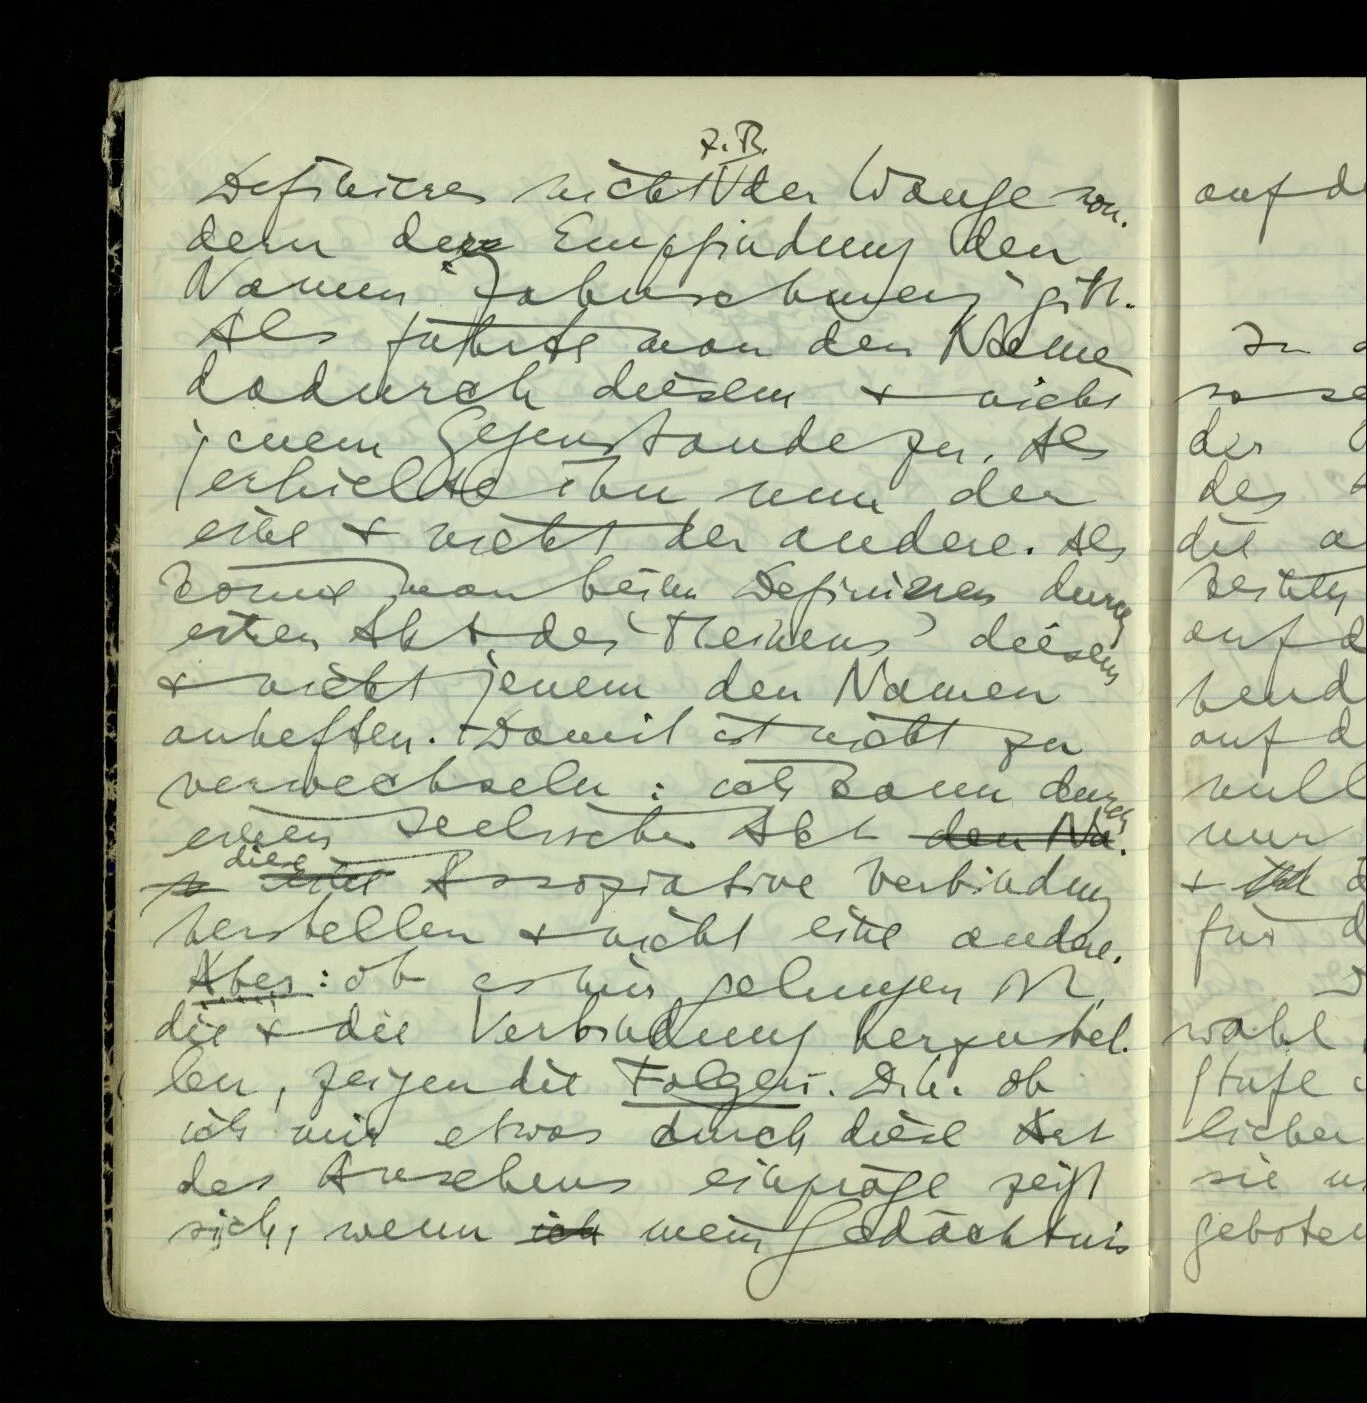 z.B.
Definieren nicht der Wange son-
dern der Empfindung den
Namen "Zahnschmerz" gibt.
Als führte man den Name
dadurch diesem + nicht
jenem Gegenstande zu. Als
erhielte ihn nun der
eine + nicht der andere. Als
könne man beim Definieren durch
einen Akt des 'Meinens' diesem
+ nicht jenem den Namen
anheften. Damit ist nicht zu
verwechseln: ich kann durch
einen seelischen Akt den Na-
diese
eine Assoziative Verbindung
herstellen + nicht eine andere.
Aber: ob es mir gelungen ist,
die + die Verbindung herzustel-
len, zeigen die Folgen. D.h. ob
ich mir etwas durch diese Art
des Ansehens einpräge zeigt
sich, wenn ich mein Gedächtnis
auf d
In
so se
der
des
die a
auf d
auf d
null
nur
+
für d
wohl
stufe
licher
sie
geboten